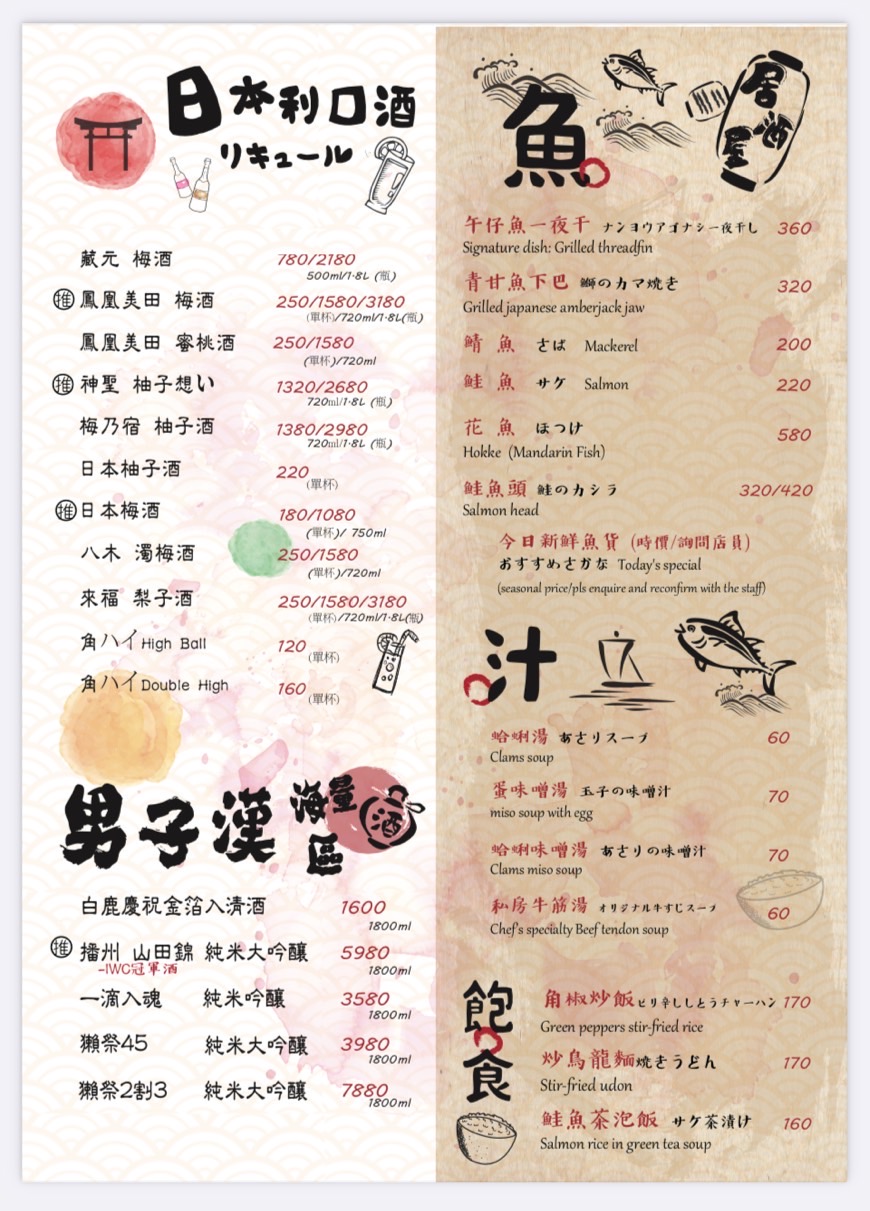 日本利口酒
リキュール
藏元 梅酒 780/2180
500ml/1.8L (瓶)
推 鳳凰美田 梅酒 250/1580/3180
(單杯)/720ml/1.8L(瓶)
鳳凰美田 蜜桃酒 250/1580
(單杯)/720ml
推 神聖 柚子想い 1320/2680
720ml/1.8L (瓶)
梅乃宿 柚子酒 1380/2980
720ml/1.8L (瓶)
日本柚子酒 220
(單杯)
推 日本梅酒 180/1080
(單杯)/ 750ml
八木 濁梅酒 250/1580
(單杯)/720ml
來福 梨子酒 250/1580/3180
(單杯)/720ml/1.8L(瓶)
角ハイHigh Ball 120
(單杯)
角ハイDouble High 160
(單杯)
男子漢 海量區
酒
白鹿慶祝金箔入清酒 1600
1800ml
推 播州 山田錦 純米大吟釀 5980
-IWC冠軍酒 1800ml
一滴入魂 純米吟釀 3580
1800ml
獺祭45 純米大吟釀 3980
1800ml
獺祭2割3 純米大吟釀 7880
1800ml
魚
居酒屋
午仔魚一夜干 ナンヨウアゴナシ一夜干し 360
Signature dish: Grilled threadfin
青甘魚下巴 鰤のカマ焼き 320
Grilled japanese amberjack jaw
鯖魚 さば Mackerel 200
鮭魚 サケ Salmon 220
花魚 ほつけ 580
Hokke (Mandarin Fish)
鮭魚頭 鮭のカシラ 320/420
Salmon head
今日新鮮魚貨 (時價/詢問店員)
おすすめさかな Today's special
(seasonal price/pls enquire and reconfirm with the staff)
汁
蛤蜊湯 あさりスープ 60
Clams soup
蛋味噌湯 玉子の味噌汁 70
miso soup with egg
蛤蜊味噌湯 あさりの味噌汁 70
Clams miso soup
私房牛筋湯 オリジナル牛すじスープ 60
Chef's specialty Beef tendon soup
飽食
角椒炒飯 ピリ辛ししとうチャーハン 170
Green peppers stir-fried rice
炒烏龍麵 焼きうどん 170
Stir-fried udon
鮭魚茶泡飯 サケ茶漬け 160
Salmon rice in green tea soup